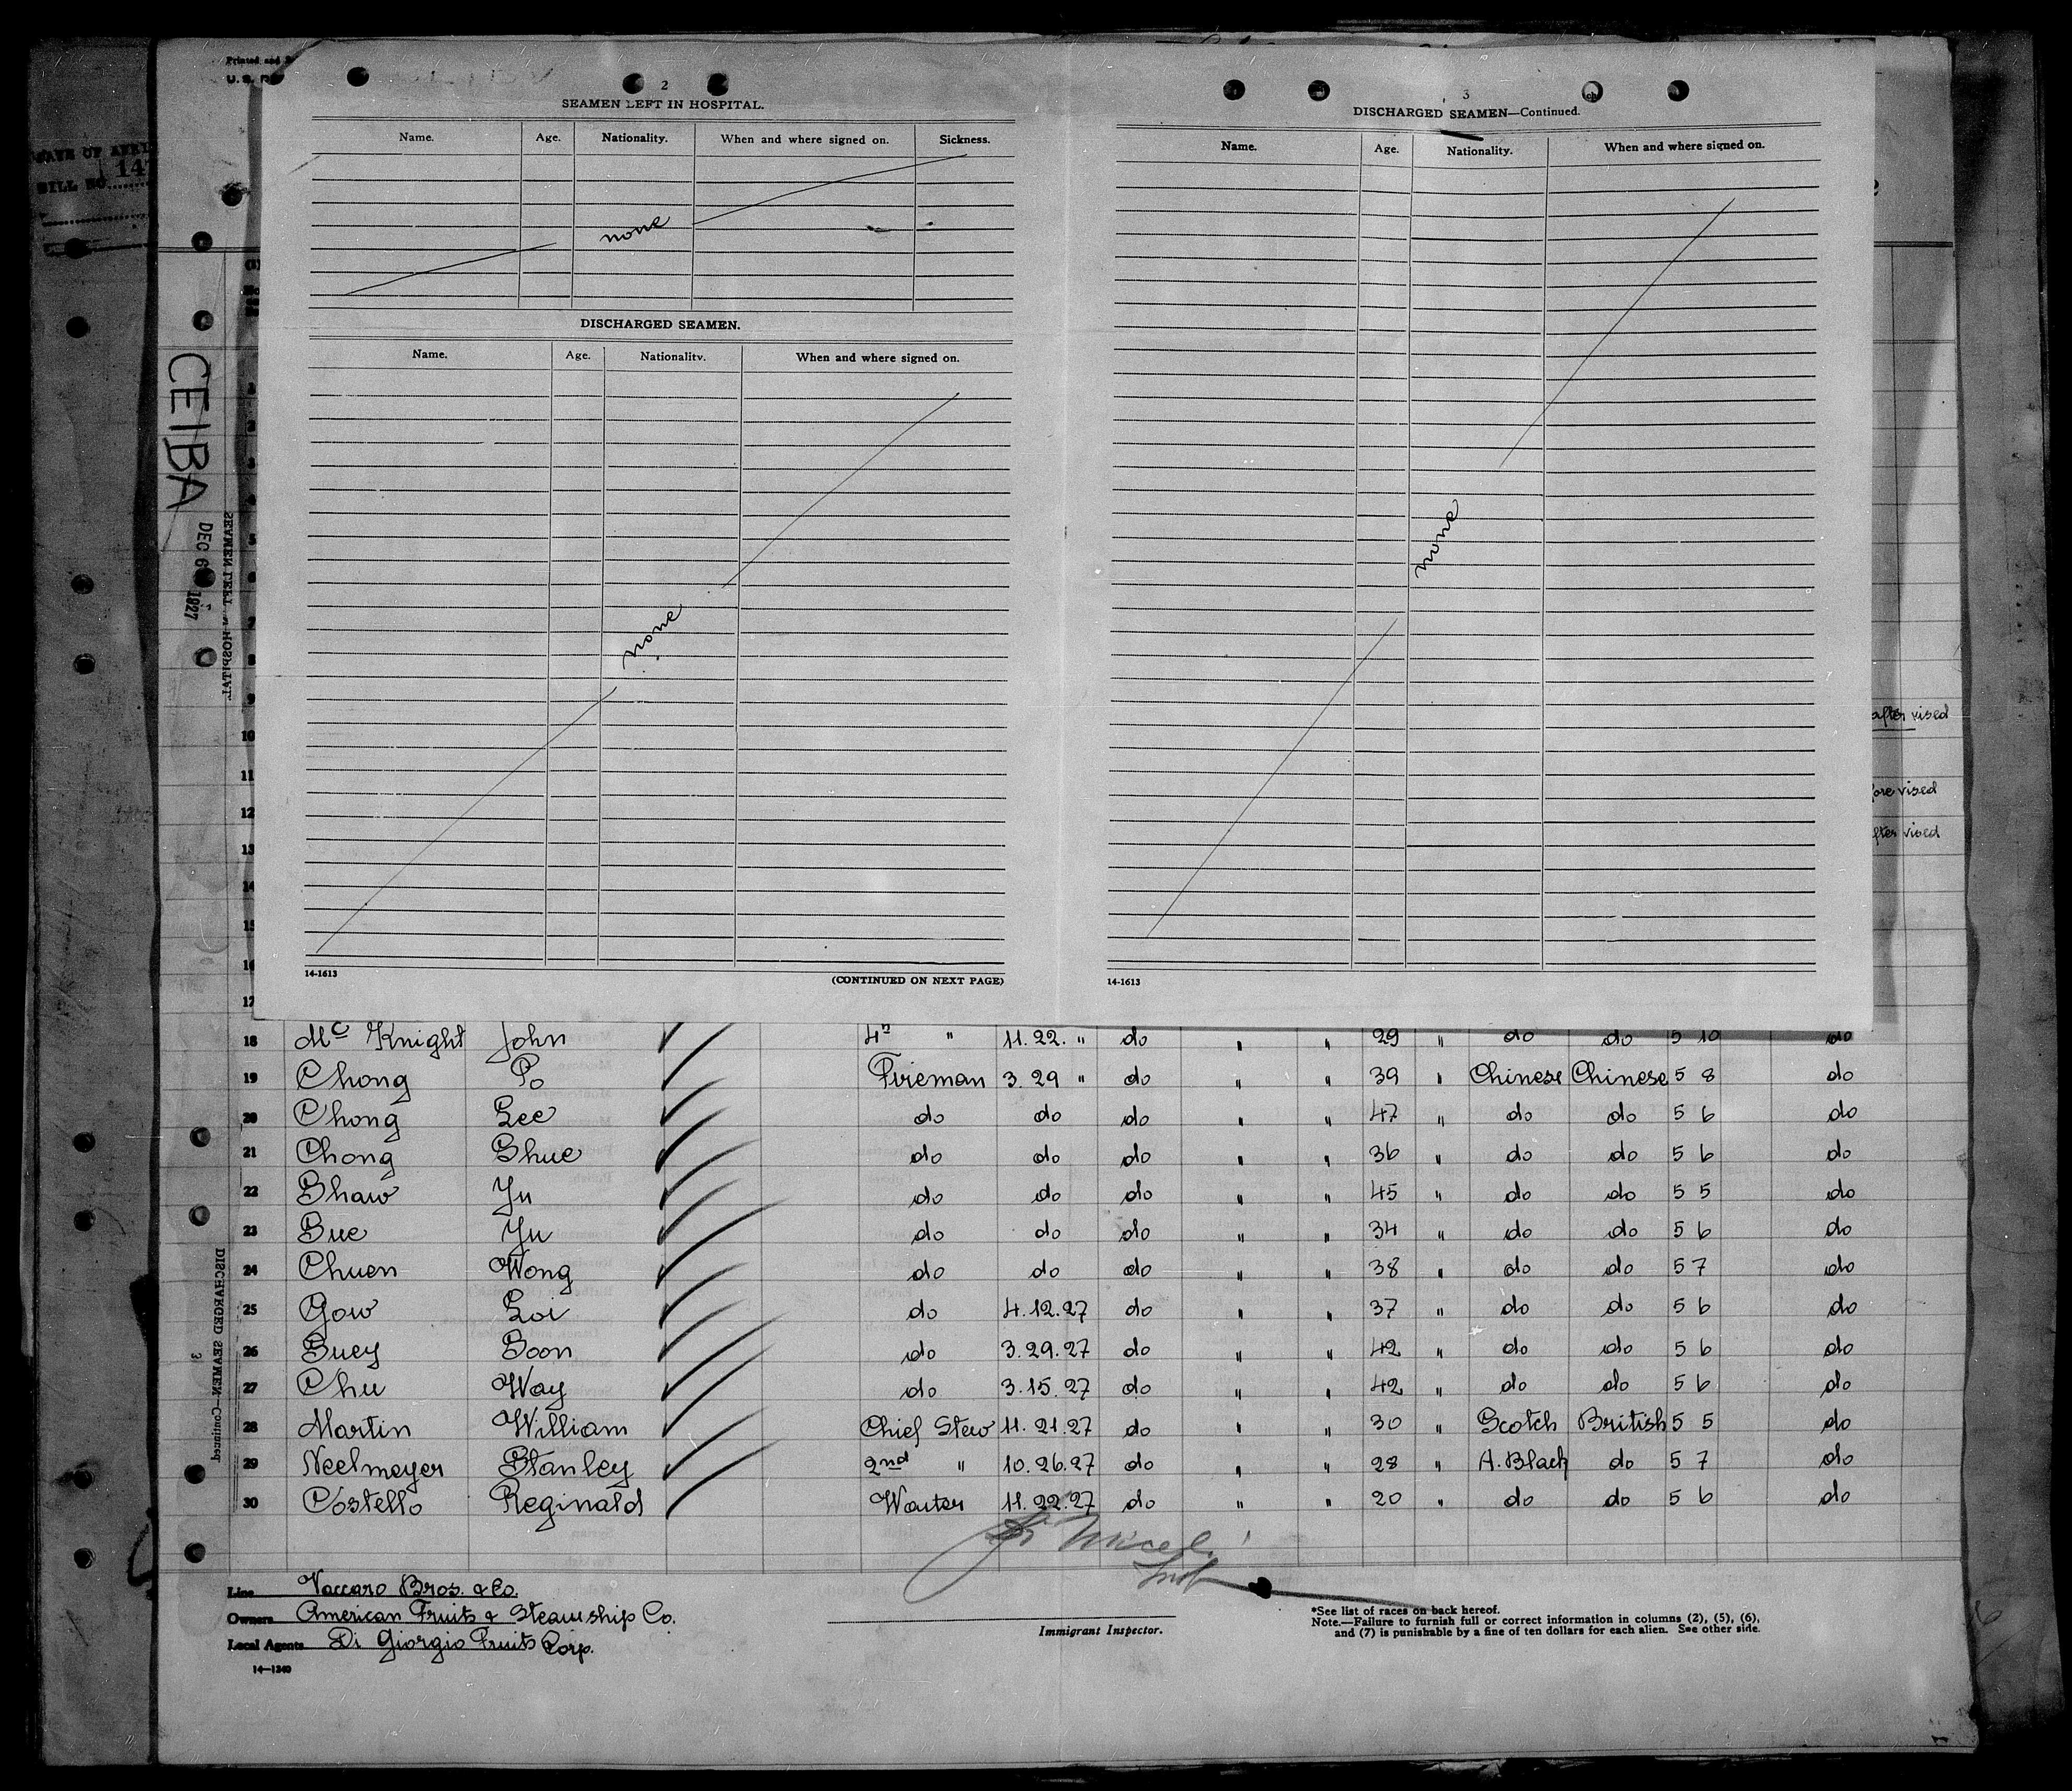 Printed and
U. S.
DATE OF
BILL NO. 147
CEIBA
DEC 6 1927
SEAMEN LEFT IN HOSPITAL.
DISCHARGED SEAMEN—Continued.
3
2
SEAMEN LEFT IN HOSPITAL.
Name. Age. Nationality. When and where signed on. Sickness.
none
DISCHARGED SEAMEN.
Name. Age. Nationality. When and where signed on.
none
14-1613 (CONTINUED ON NEXT PAGE)
3
DISCHARGED SEAMEN—Continued.
Name. Age. Nationality. When and where signed on.
none
14-1613
after vised
fore vised
fter vised
1
2
3
4
5
6
7
8
9
10
11
12
13
14
15
16
17
18 Mc Knight John 4th " 11.22. " do " " 29 " do do 5 10 do
19 Chong Po Fireman 3.29 " do " " 39 " Chinese Chinese 5 8 do
20 Chong See do do do " " 47 " do do 5 6 do
21 Chong Shue do do do " " 36 " do do 5 6 do
22 Shaw Yu do do do " " 45 " do do 5 5 do
23 Sue Yu do do do " " 34 " do do 5 6 do
24 Chuen Wong do do do " " 38 " do do 5 7 do
25 Gow Loi do 4.12.27 do " " 37 " do do 5 6 do
26 Suey Soon do 3.29.27 do " " 42 " do do 5 6 do
27 Chu Way do 3.15.27 do " " 42 " do do 5 6 do
28 Martin William Chief Stew 11.21.27 do " " 30 " Scotch British 5 5 do
29 Neelmeyer Stanley 2nd " 10.26.27 do " " 28 " A. Black do 5 7 do
30 Costello Reginald Waiter 11.22.27 do " " 20 " do do 5 6 do
Line Vaccaro Bros. & Co.
Owners American Fruits & Steamship Co.
Local Agents Di Giorgio Fruits Corp.
14—1240
Immigrant Inspector.
*See list of races on back hereof.
Note.—Failure to furnish full or correct information in columns (2), (5), (6),
and (7) is punishable by a fine of ten dollars for each alien. See other side.